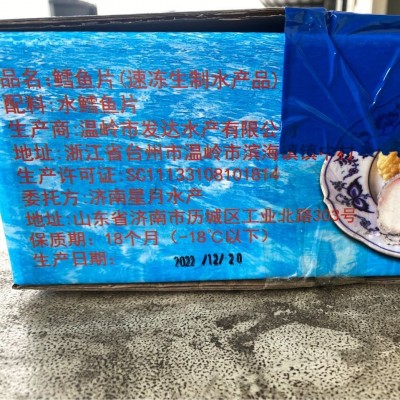 品名:鳕鱼片(速冻生制水产品)
配料:水鳕鱼片
生产商:温岭市发达水产有限公
地址:浙江省台州市温岭市滨海镇镇
生产许可证:SC11133108101814
委托方:济南星月水产
地址:山东省济南市历城区工业北路303号
保质期:18个月(-18℃以下)
生产日期:
2022/12/20